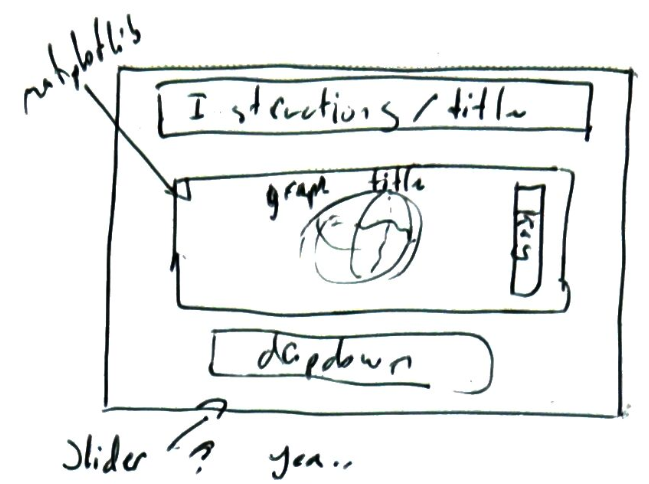 matplotlib
Istructions/title
graph title
Key
dropdown
slider ? yea..